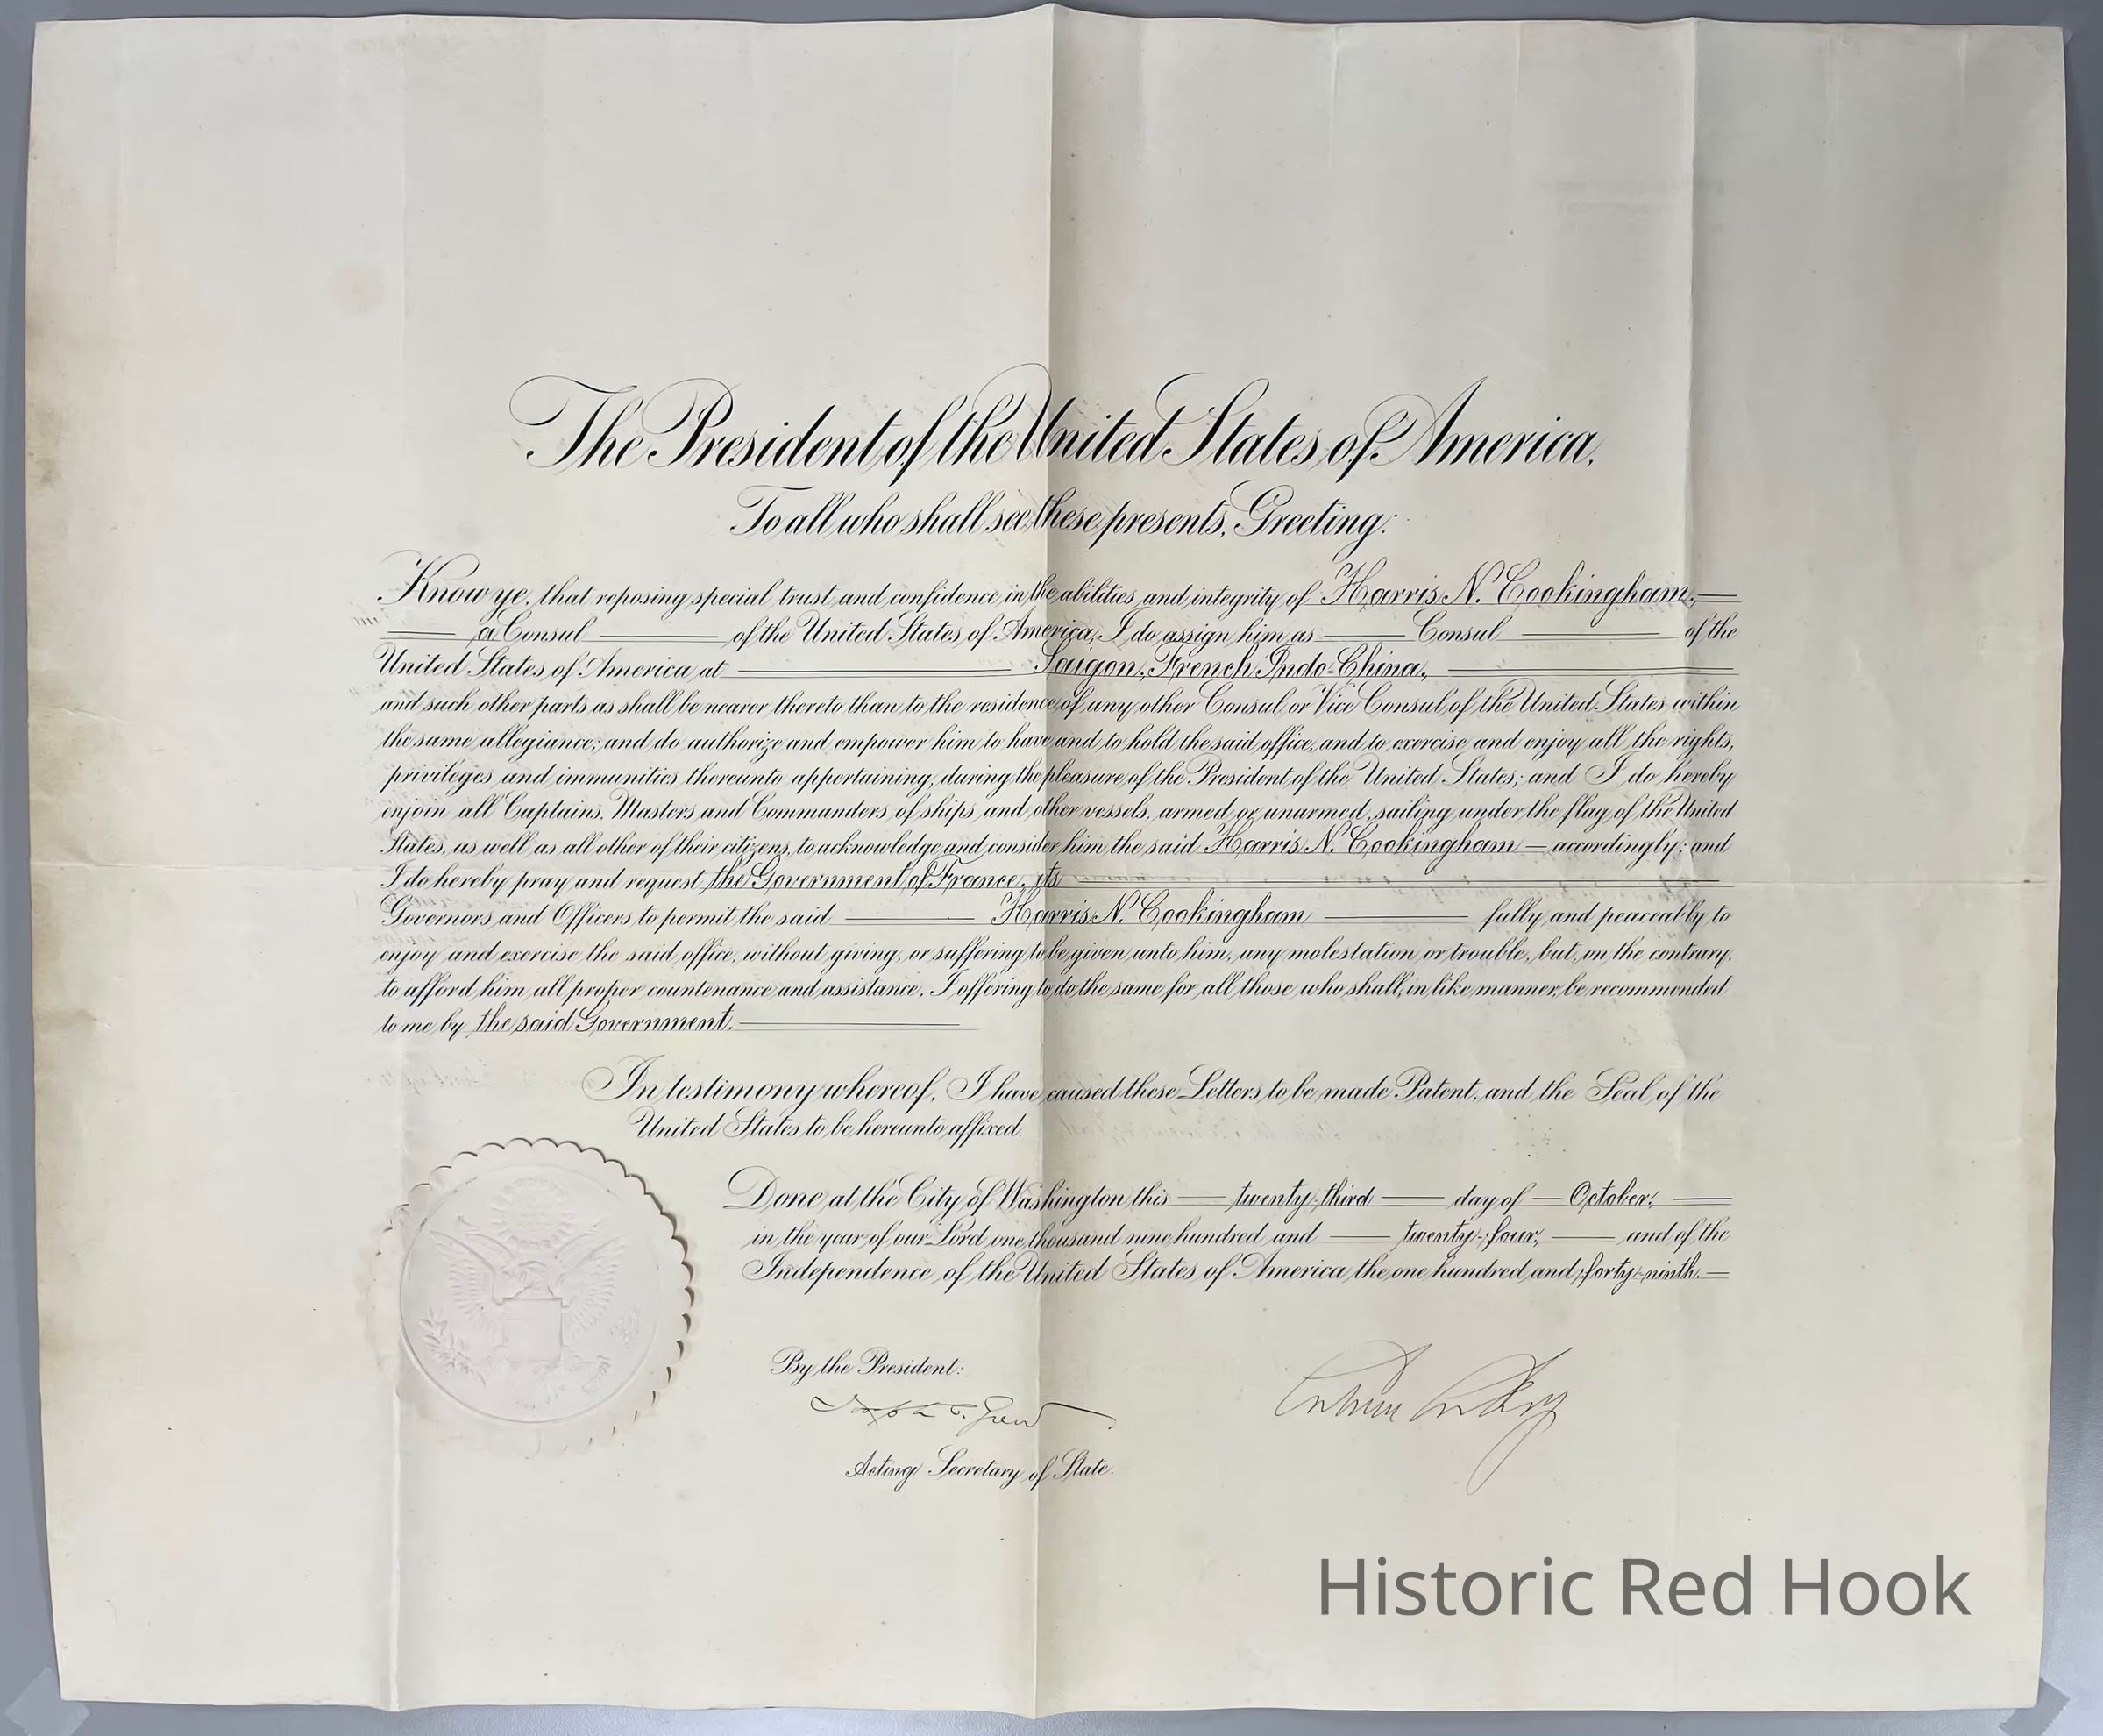 The President of the United States of America,
To all who shall see these presents, Greeting:
Know ye, that reposing special trust and confidence in the abilities and integrity of Harris N. Cookingham,
a Consul of the United States of America, I do assign him as Consul of the
United States of America at Saigon, French Indo-China,
and such other parts as shall be nearer thereto than to the residence of any other Consul or Vice Consul of the United States within
the same allegiance; and do authorize and empower him to have and to hold the said office, and to exercise and enjoy all the rights,
privileges and immunities thereunto appertaining, during the pleasure of the President of the United States; and I do hereby
enjoin all Captains, Masters and Commanders of ships and other vessels, armed or unarmed, sailing under the flag of the United
States, as well as all other of their citizens, to acknowledge and consider him the said Harris N. Cookingham accordingly; and
I do hereby pray and request the Government of France, its
Governors and Officers to permit the said Harris N. Cookingham fully and peaceably to
enjoy and exercise the said office, without giving, or suffering to be given unto him, any molestation or trouble, but, on the contrary,
to afford him all proper countenance and assistance, I offering to do the same for all those who shall, in like manner, be recommended
to me by the said Government.
In testimony whereof, I have caused these Letters to be made Patent, and the Seal of the
United States to be hereunto affixed.
Done at the City of Washington this twenty-third day of October,
in the year of our Lord one thousand nine hundred and twenty-four, and of the
Independence of the United States of America the one hundred and forty-ninth.
By the President:
Joseph C. Grew
Calvin Coolidge
Acting Secretary of State.
Historic Red Hook